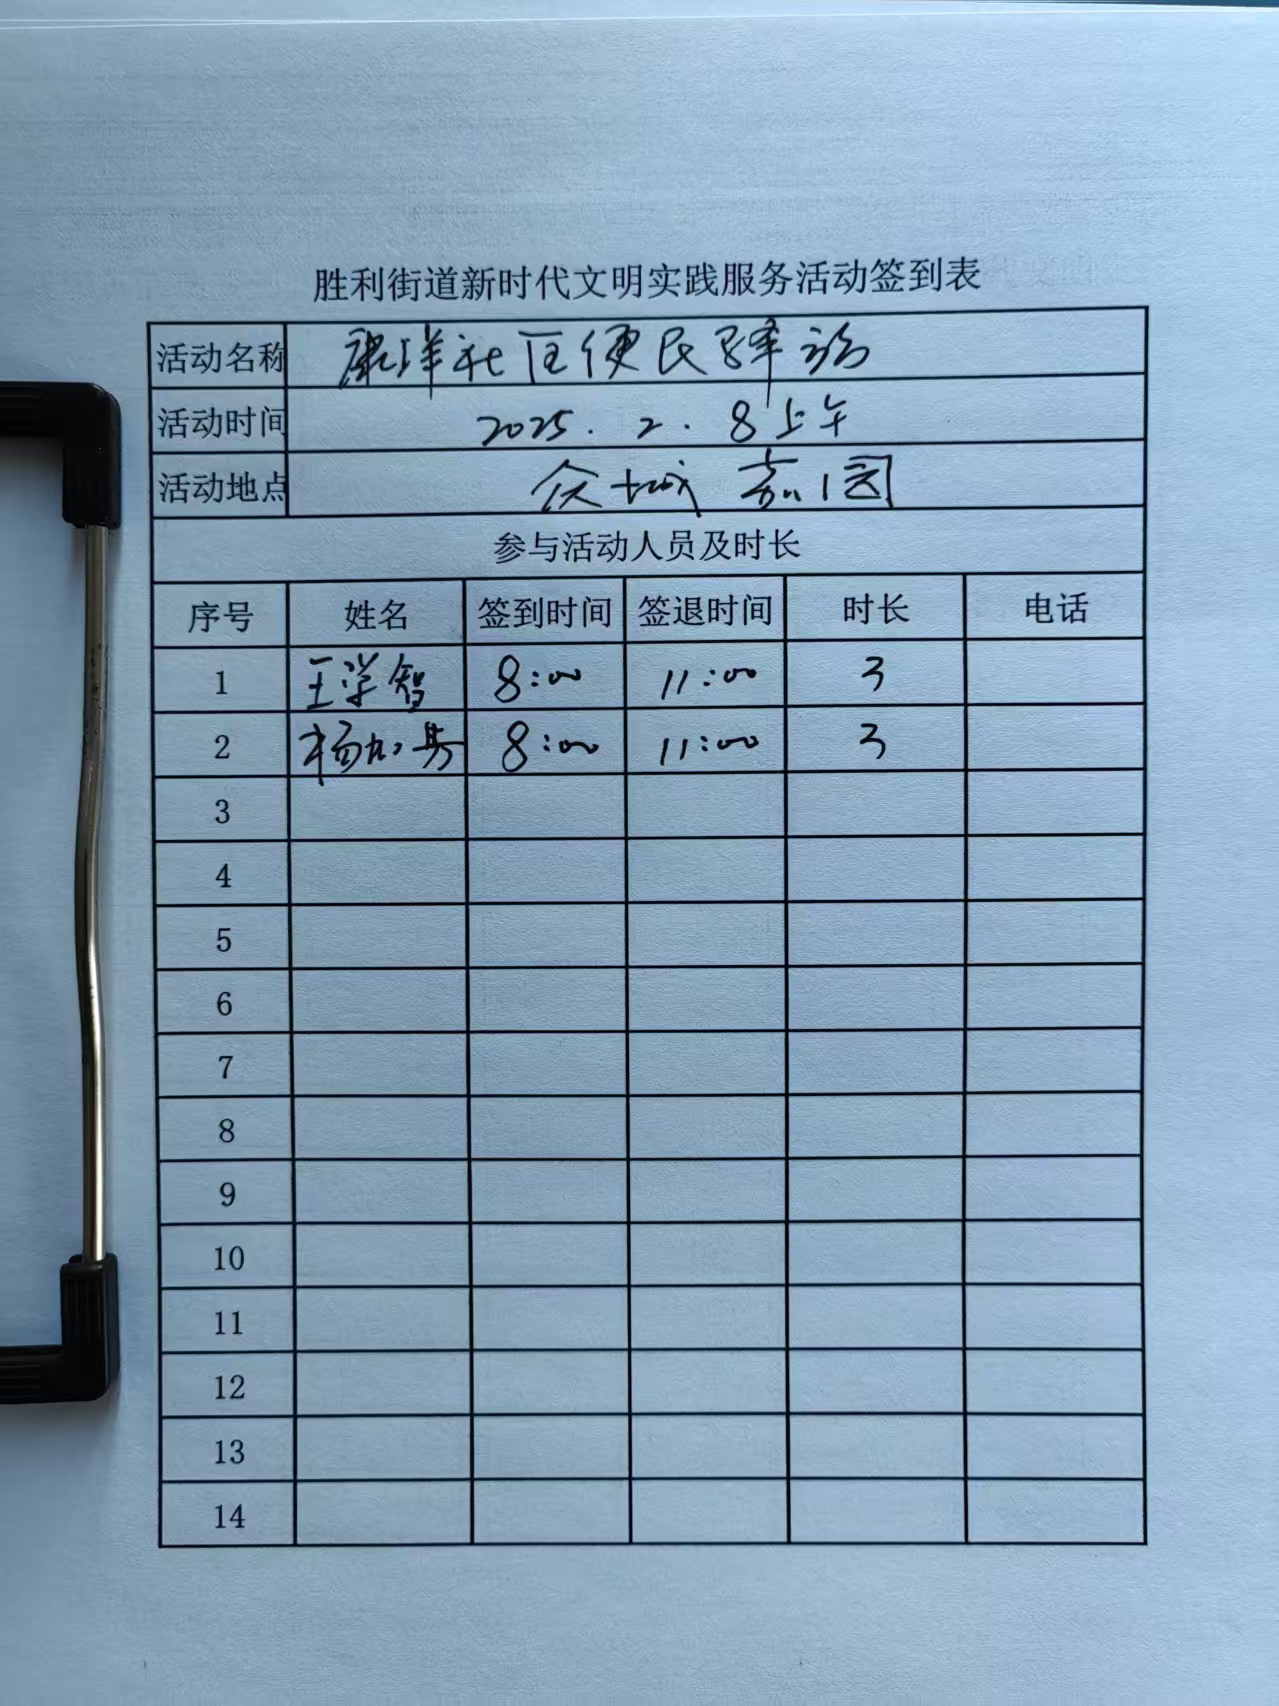 胜利街道新时代文明实践服务活动签到表
活动名称 康洋社区便民驿站
活动时间 2025.2.8上午
活动地点 众城嘉园
参与活动人员及时长
序号 姓名 签到时间 签退时间 时长 电话
1 王学智 8:00 11:00 3
2 杨加 8:00 11:00 3
3
4
5
6
7
8
9
10
11
12
13
14